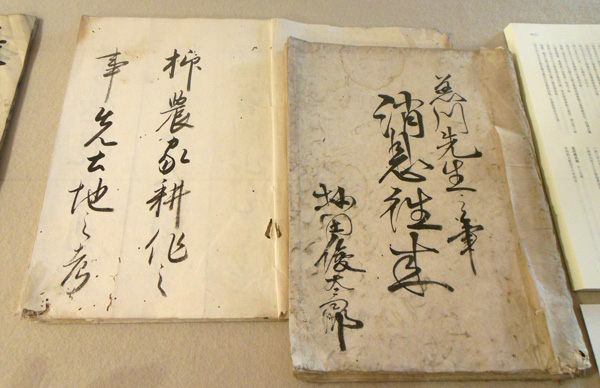 川先生之筆
消息往来
田俊太郎
抑農家耕作之
事先土地之考